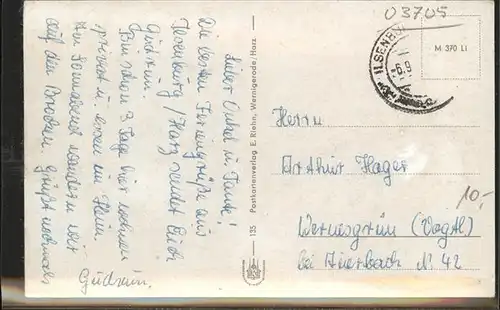 Lieber Onkel u. Tante!
Die besten Feriengrüße aus
Ilsenburg / Harz sendet Euch
Gudrun.
Bin schon 3 Tage hier wohnen
privat u. essen im Heim.
Am Sonnabend wandern wir
auf den Brocken. Grüßt nochmals
Gudrun.
135 Postkartenverlag E. Riehn, Wernigerode/Harz
03705
ILSENBU
-6.9.
M 370 Li
Herrn
Arthur Hager
10,-
Wernesgrün (Vogtl.)
bei Auerbach Nr. 42